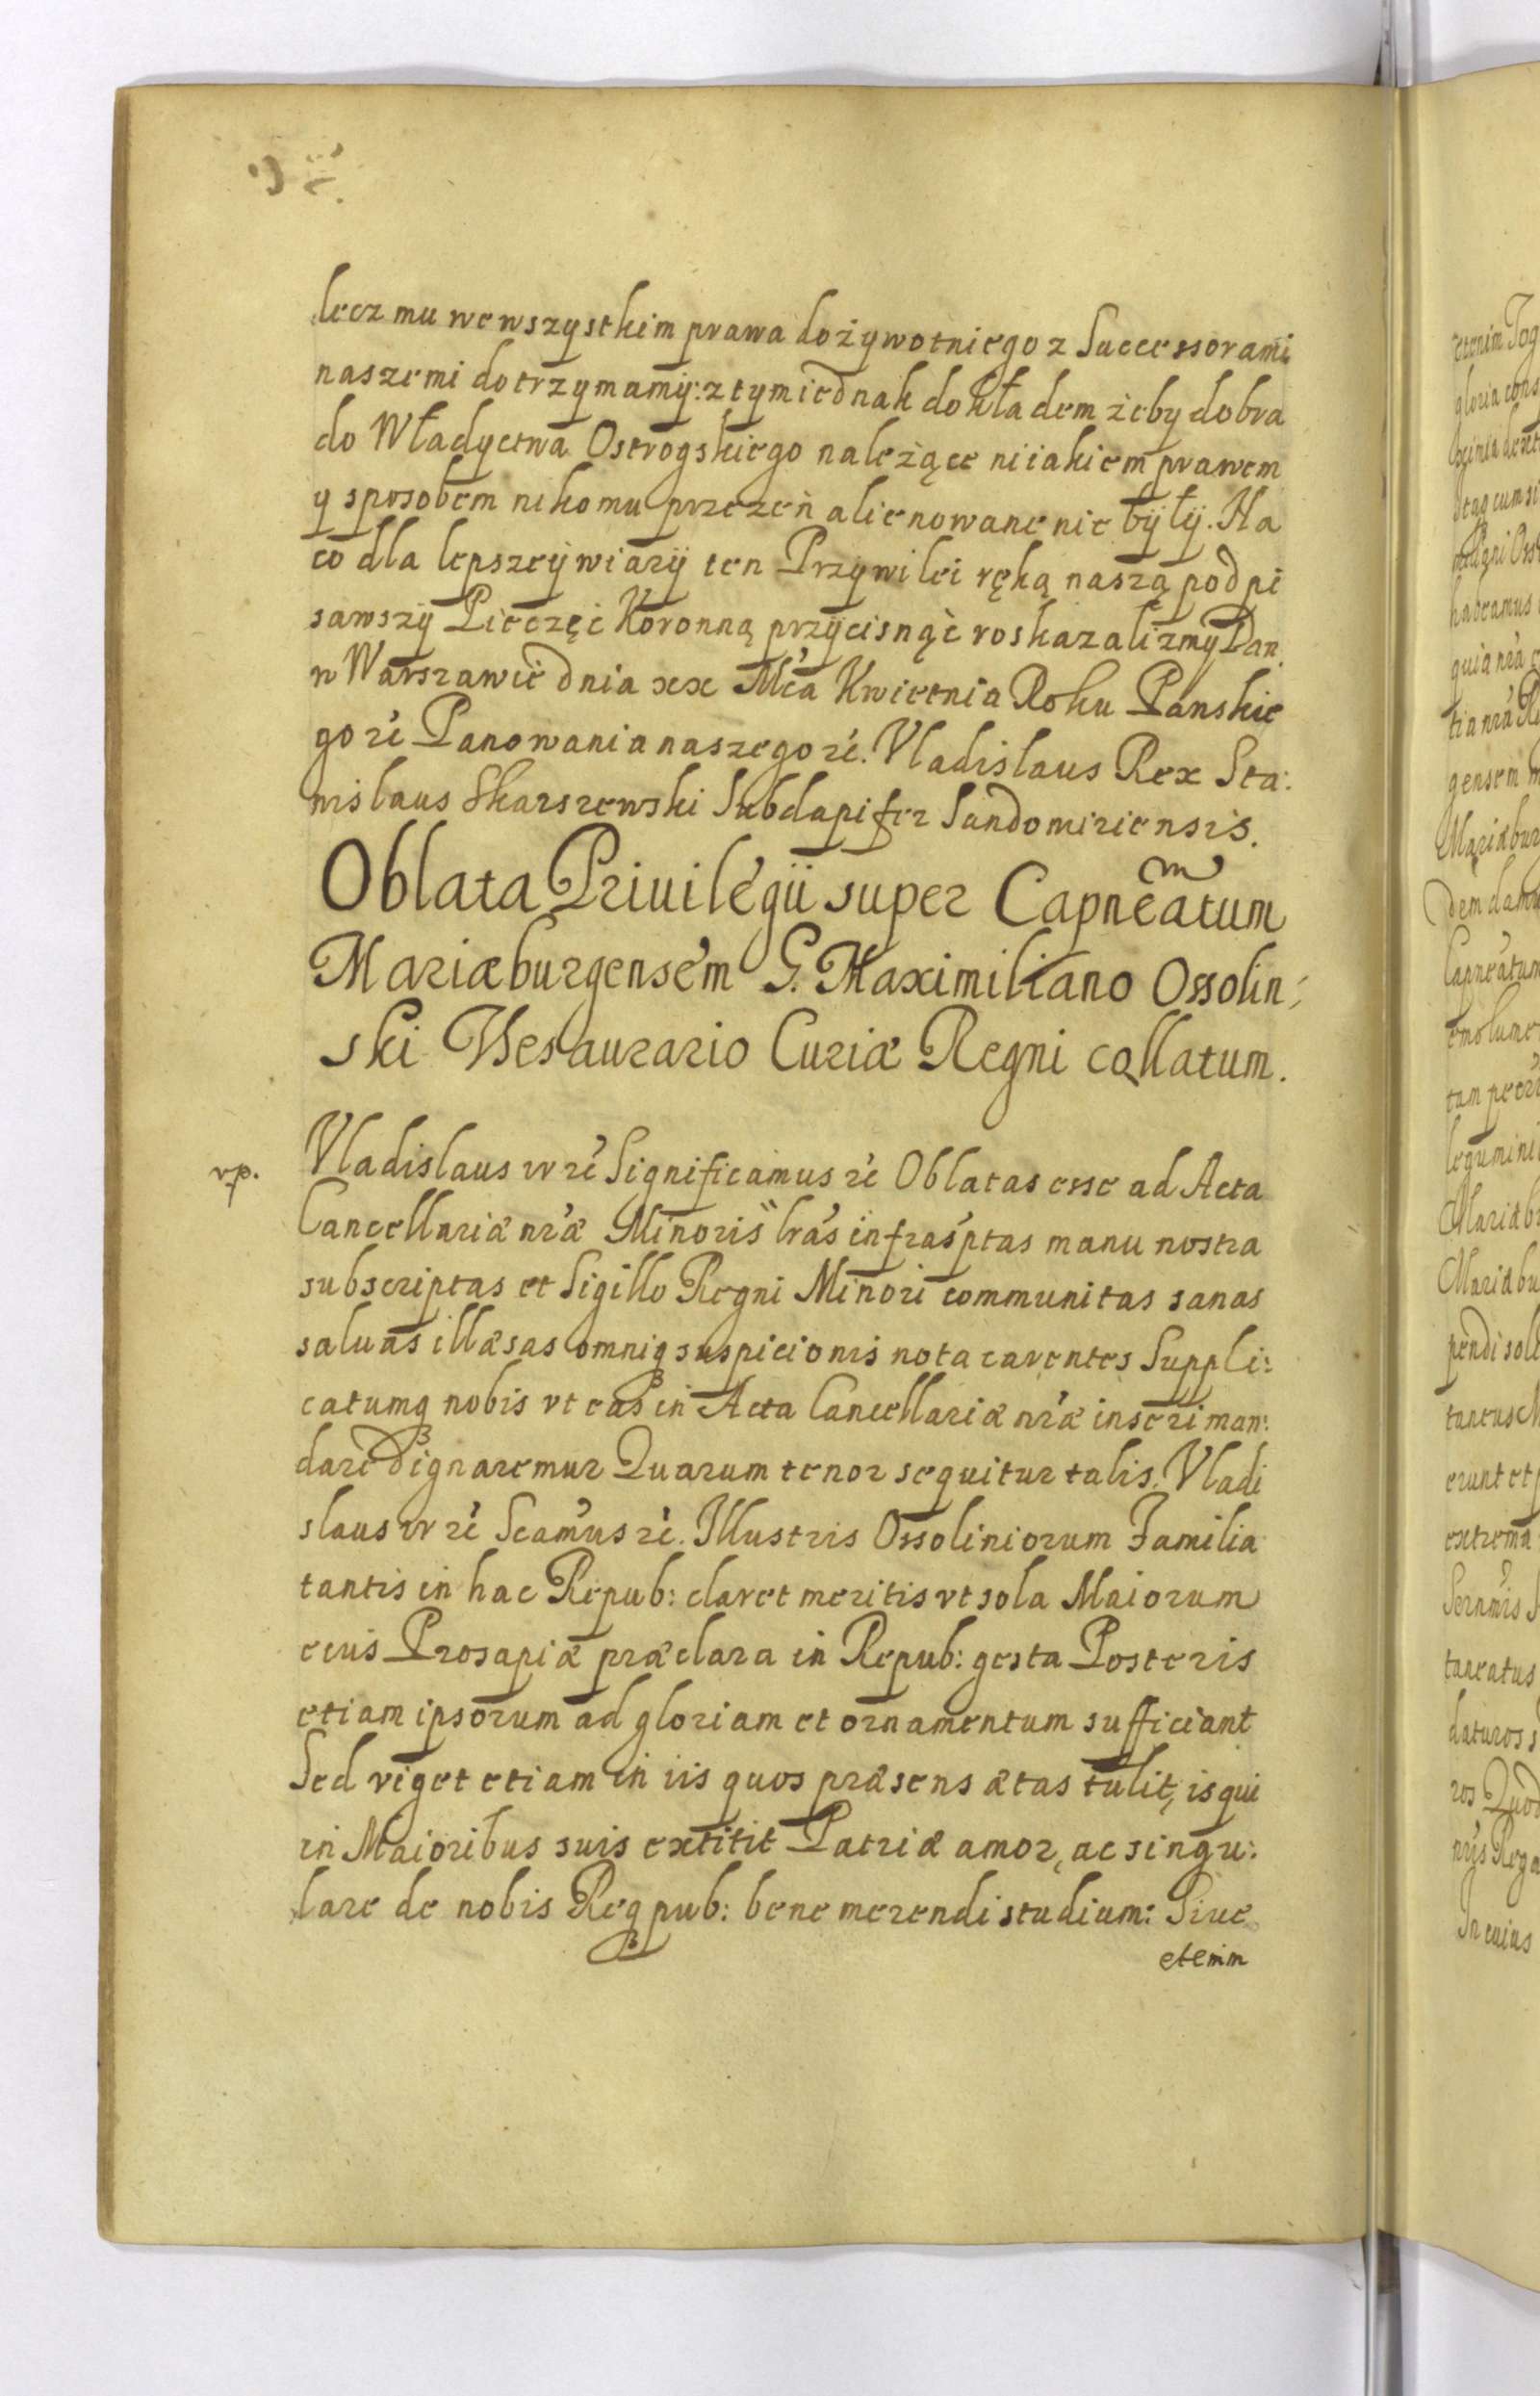 lecz mu we wszystkim prawa dożywotniego z Successorami
naszemi dotrzymamÿ: z tym iednak dokładem żeby dobra
do Władyctwa Ostrogskiego należące niiakiem prawem
y sposobem nikomu przezeń alienowane nie bÿłÿ. Na
co dla lepszeÿ wiarÿ ten Przywilei ręką naszą podpi
sawszÿ Pieczęć Koronną przÿcisnąć roskazalizmy Dan
w Warszawie dnia xx Mc̃a Kwietnia Roku Panskie
go zć Panowania naszego zć. Vladislaus Rex Sta:
nislaus Skarszewski Subdapifer Sandomiriensis.
Oblata Priuilegii super Capnẽatum
Mariæburgensem G. Maximiliano Ossolin;
ski Thesaurario Curiæ Regni collatum.
vp. Vladislaus iv zć Significamus zć Oblatas esse ad Acta
Cancellariæ nr̃æ Minoris lr̃as infrasp̃tas manu nostra
subscriptas et Sigillo Regni Minori communitas sanas
saluas illæsas omniqꝫ suspicionis nota carentes Suppli:
catumqꝫ nobis vt eas in Acta Cancellariæ nr̃æ inseri man:
dare dignaremur Quarum tenor sequitur talis. Vladi
slaus iv zć Scam̃us zć. Illustris Ossoliniorum Familia
tantis in hac Repub: claret meritis vt sola Maiorum
eius Prosapiæ præclara in Repub: gesta Posteris
etiam ipsorum ad gloriam et ornamentum sufficiant
Sed viget etiam in iis quos præsens ætas tulit, is qui
in Maioribus suis extitit Patriæ amor, ac singu:
lare de nobis Reqꝫ pub: bene merendi studium: Siue
etenim